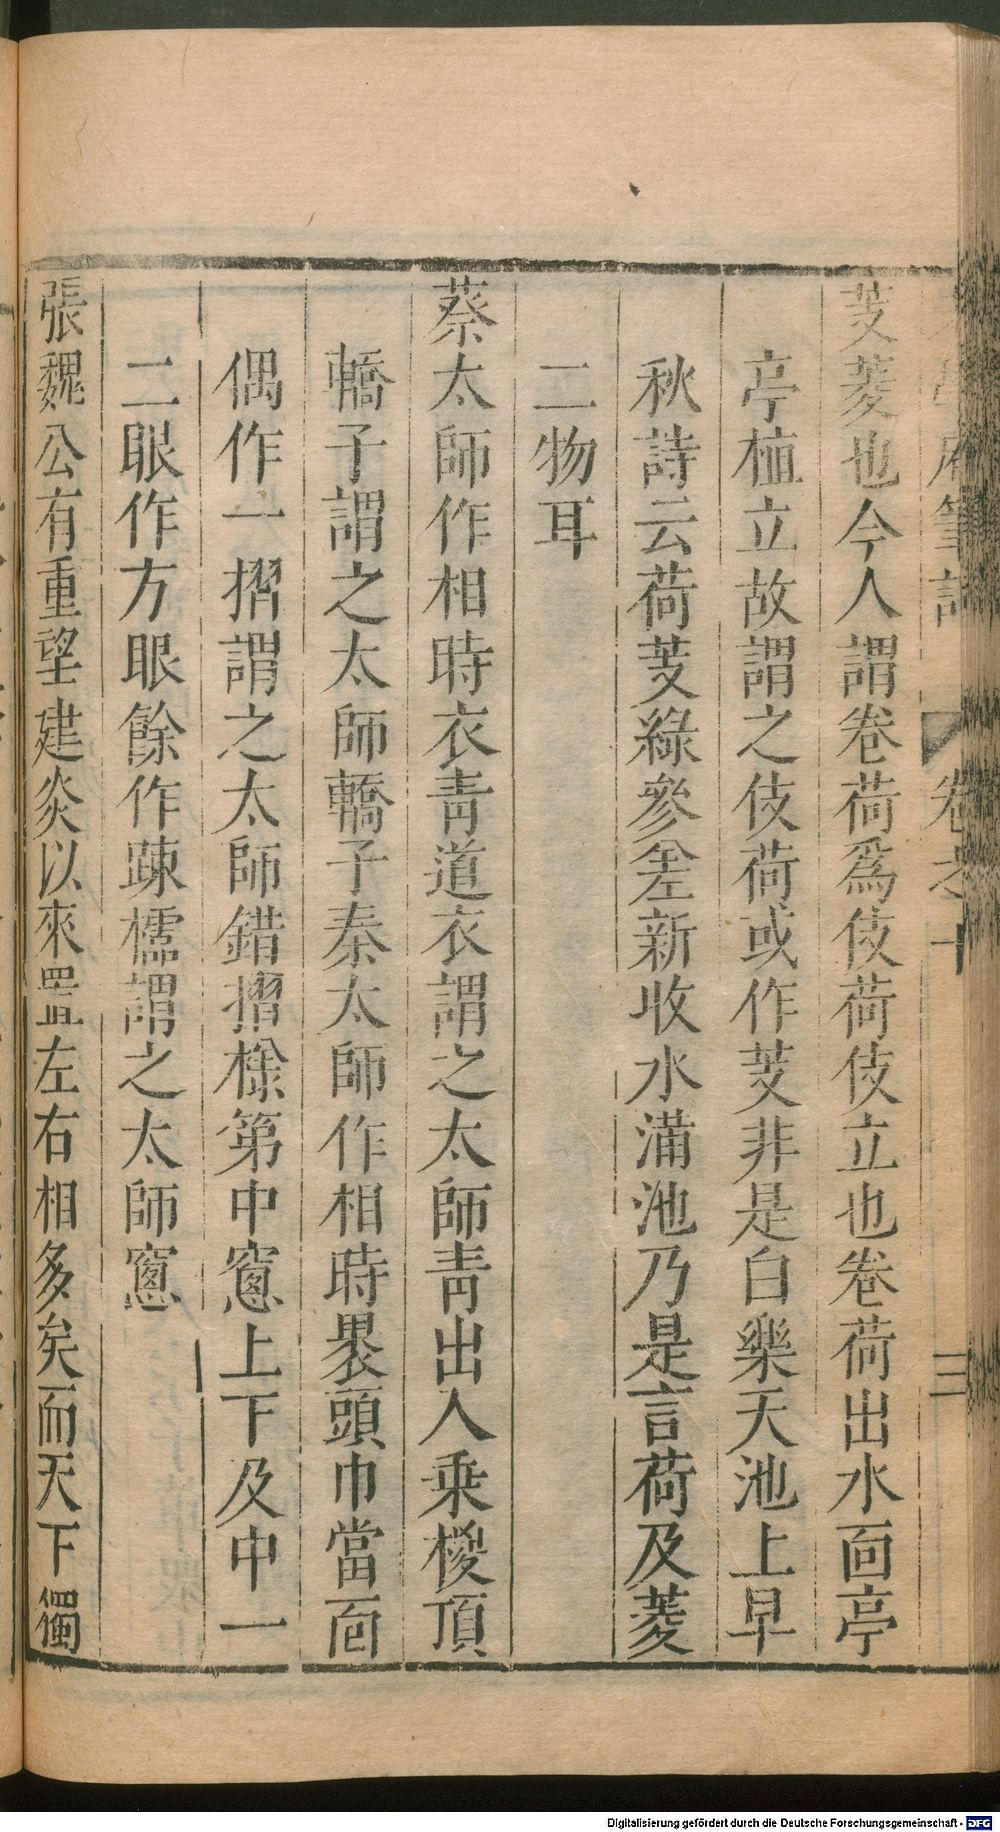 老學庵筆記 卷之十 三
芰菱也今人謂卷荷爲伎荷伎立也卷荷出水面亭
亭植立故謂之伎荷或作芰非是白樂天池上早
秋詩云荷芰綠參差新收水滿池乃是言荷及菱
二物耳
蔡太師作相時衣青道衣謂之太師青出入乗椶頂
轎子謂之太師轎子秦太師作相時褁頭巾當面
偶作一摺謂之太師錯摺様第中窻上下及中一
二眼作方眼餘作踈櫺謂之太師窻
張魏公有重望建炎以來置左右相多矣而天下獨
Digitalisierung gefördert durch die Deutsche Forschungsgemeinschaft - DFG